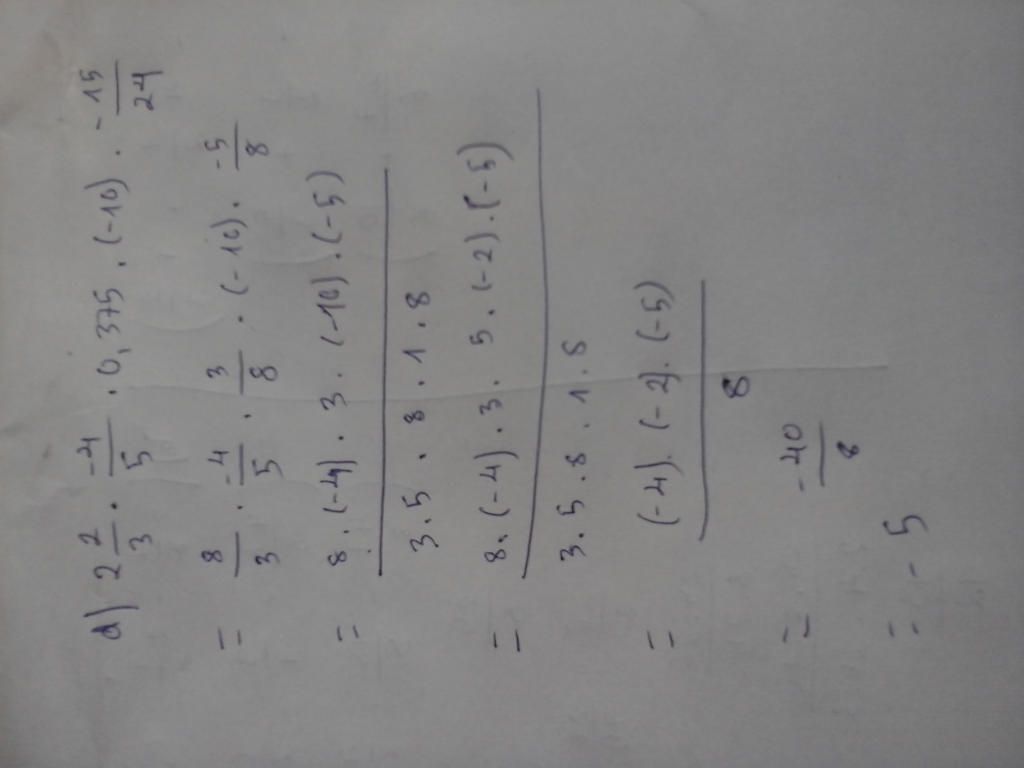 d) 2 2/3 · -4/5 · 0,375 · (-10) · -15/24
= 8/3 · -4/5 · 3/8 · (-10) · -5/8
= 8 · (-4) · 3 · (-10) · (-5)
3 · 5 · 8 · 1 · 8
= 8 · (-4) · 3 · 5 · (-2) · (-5)
3 · 5 · 8 · 1 · 8
= (-4) · (-2) · (-5)
8
= -40/8
= -5